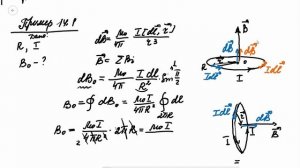 Пример 14.1
Дано:
R, I
B₀ - ?
dB⃗ = μ₀/4π · I[dl⃗, r⃗]/r³
B⃗ = ΣBᵢ
dB₀ = μ₀/4π · I dl/R² · sin π/2
B₀ = ∮ dB₀ = μ₀I/4πR² ∮ dl
2πR
B₀ = μ₀I/4πR² · 2πR = μ₀I
2
B⃗
dB⃗
dB⃗
R
I
Idl⃗
Idl⃗
Idl⃗
dB⃗
B⃗
I